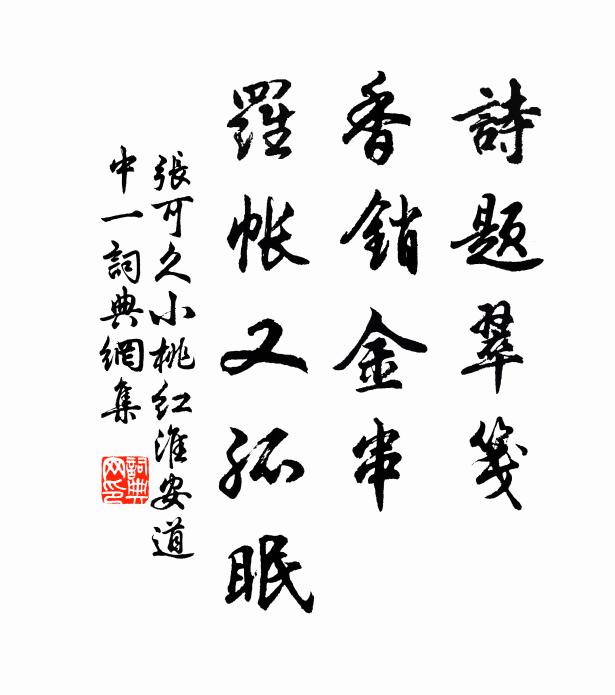 詩題翠箋
香銷金串
羅帳又孤眠
張可久小桃紅淮安道
中一詞典網集
詞典
网印